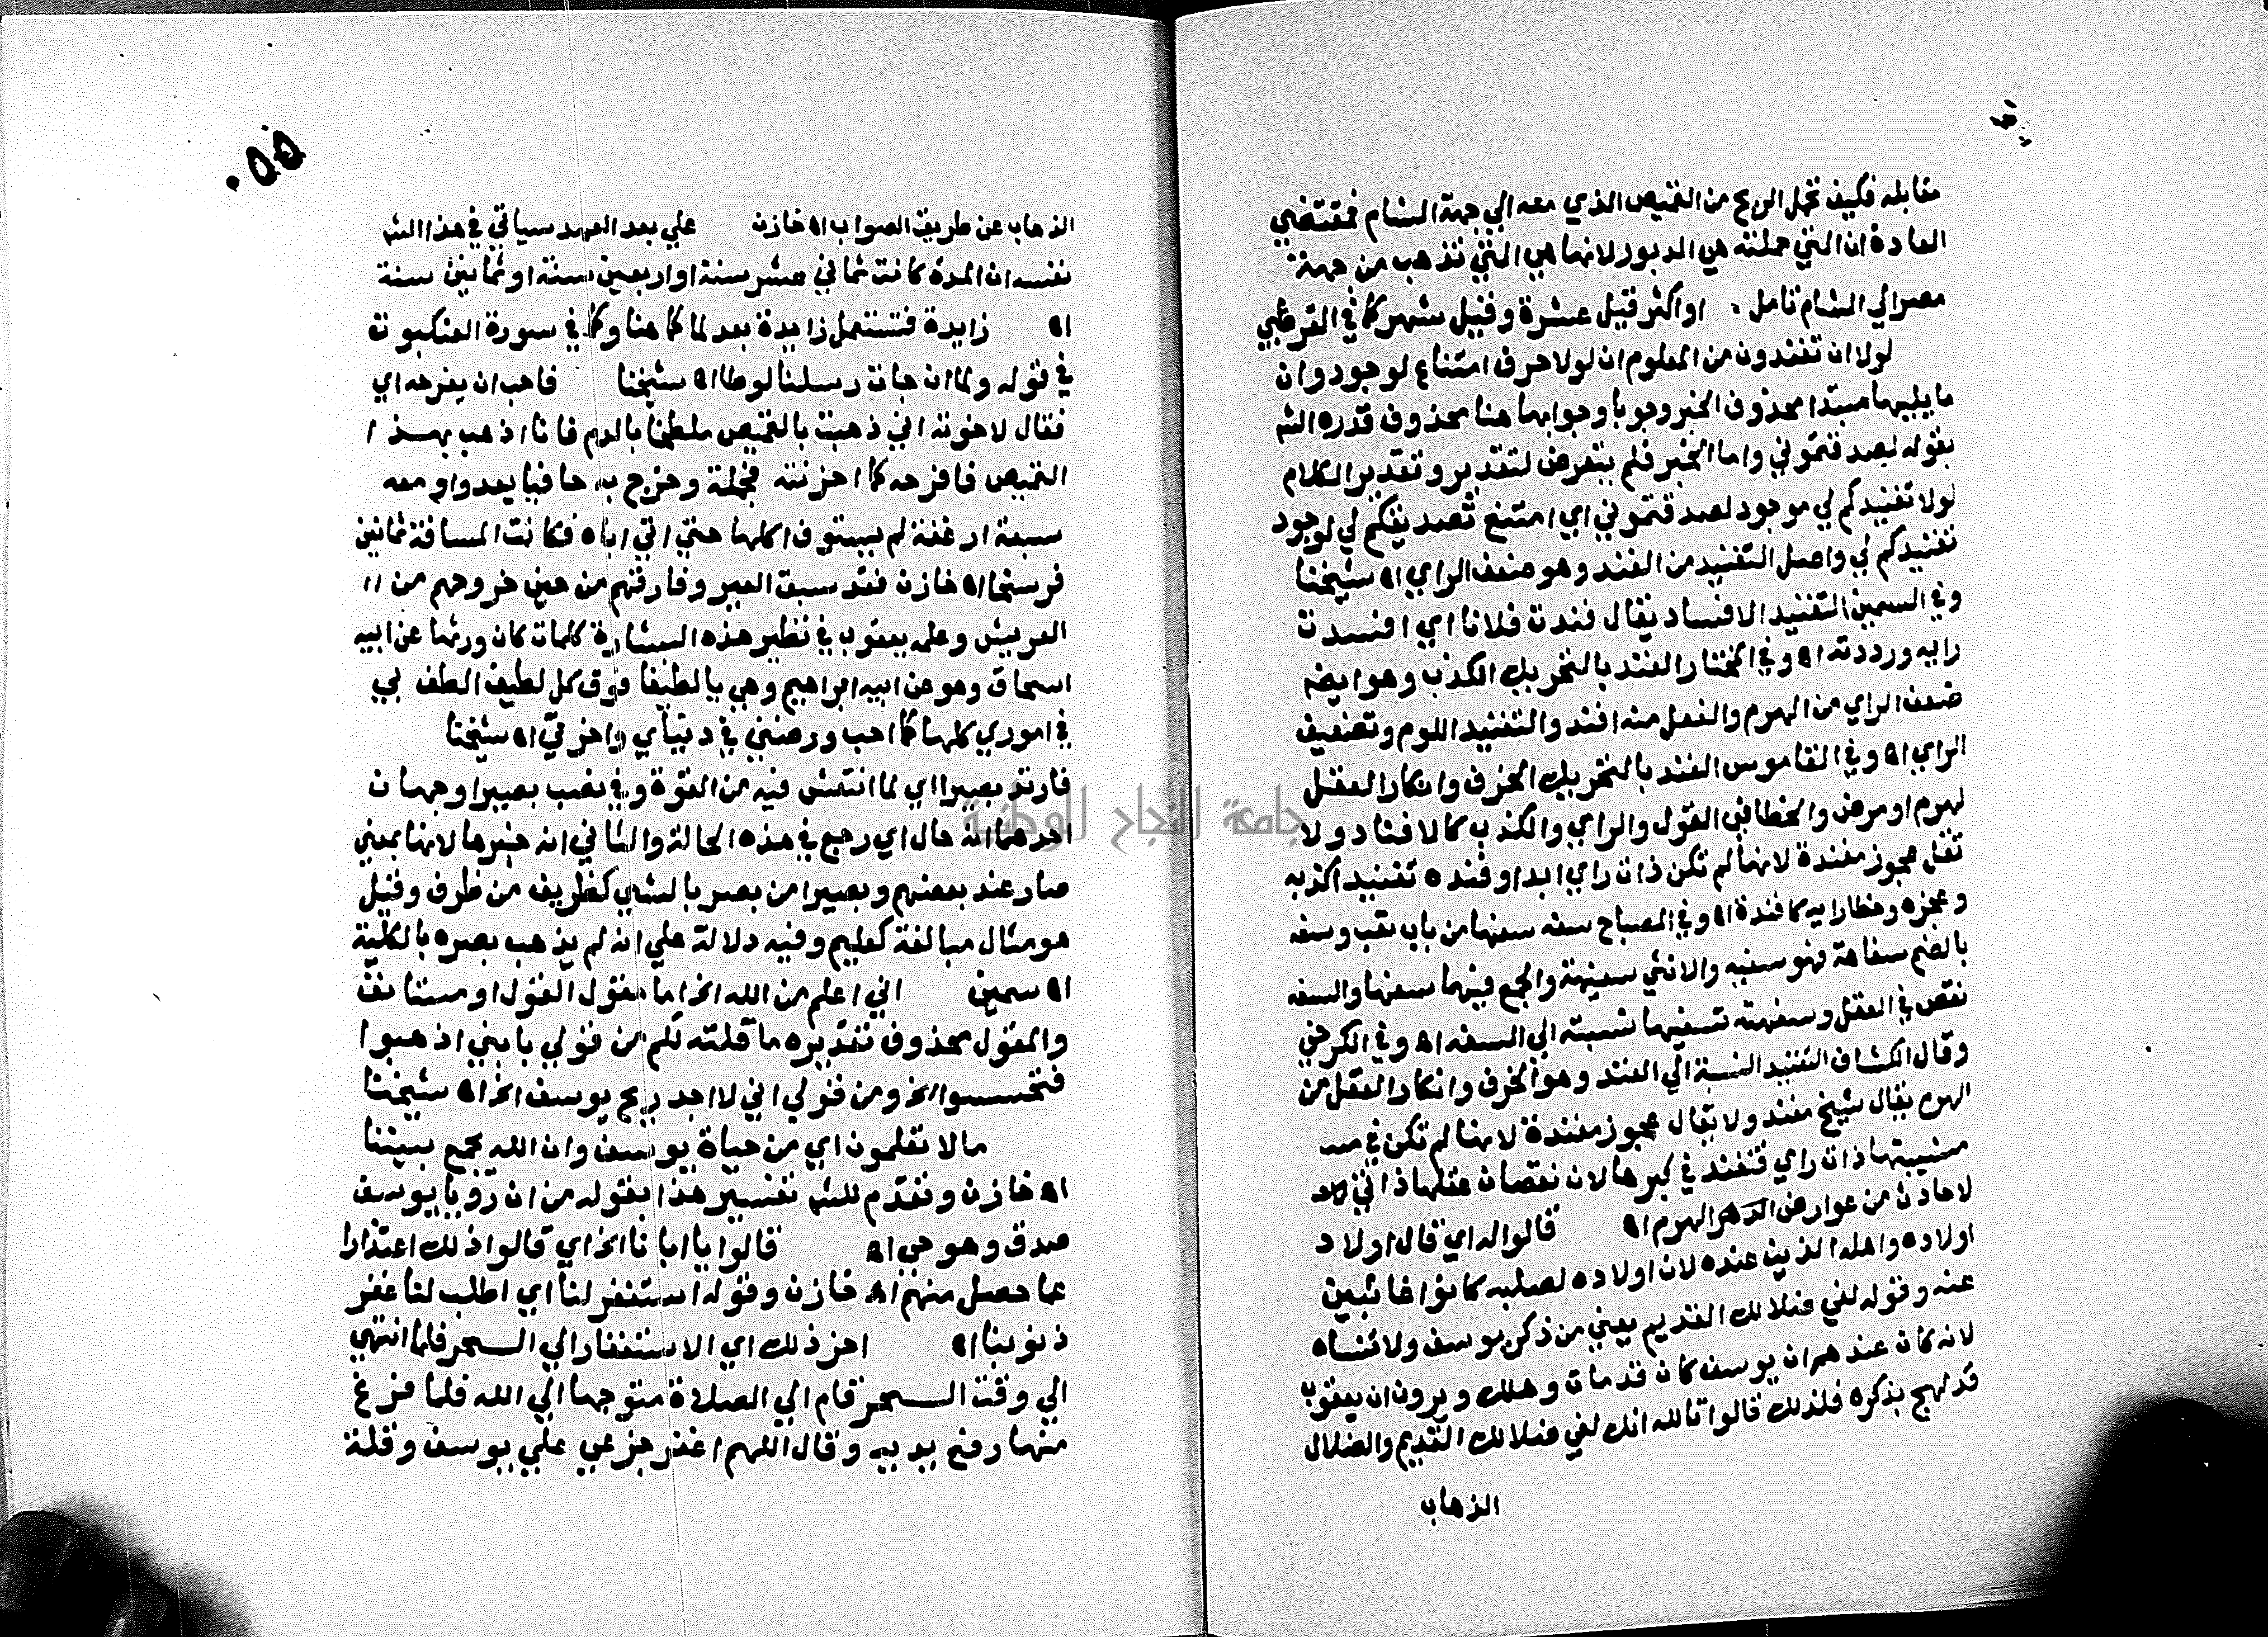 مقابله فكيف تحمل الريح من القميص الذي معه الي جهة الشام فمقتضي
العادة ان التي حملته هي الدبور لانها هي التي تذهب من جهة
مصر الي الشام تامل . او اكثر قيل عشرة وقيل شهر كما في القرطبي
لولا ان تفندون من المعلوم ان لولا حرف امتناع لوجود وان
ما يليها مبتدا محذوف الخبر وجوبا وجوابها هنا محذوف قدره الشم
بقوله لصدقتموني واما الخبر فلم يتعرض لتقديره وتقدير الكلام
لولا تفنيدكم لي موجود لصدقتموني اي امتنع تصديقكم لي لوجود
تفنيدكم لي واصل التفنيد من الفند وهو ضعف الراي اه شيخنا
وفي السمين التفنيد الافساد يقال فندت فلانا اي افسدت
رايه ورددته اه وفي المختار الفند بالتحريك الكذب وهو ايضا
ضعف الراي من الهرم والفعل منه افند والتفنيد اللوم وتضعيف
الراي اه وفي القاموس الفند بالتحريك الخرف وانكار العقل
لهرم او مرض والخطا في القول والراي والكذب كالافناد ولا
تقل عجوز مفندة لانها لم تكن ذات راي ابدا وفنده تفنيدا كذبه
وعجزه وخطا رايه كافنده اه وفي المصباح سفه سفها من باب تعب وسفه
بالضم سفاهة فهو سفيه والانثي سفيهة والجمع فيهما سفها والسفه
نقص في العقل وسفهته تسفيها نسبته الي السفه اه وفي الكرخي
وقال الكشاف التفنيد النسبة الي الفند وهو الخرف وانكار العقل من
الهرم يقال شيخ مفند ولا يقال عجوز مفندة لانها لم تكن في
شبيبتها ذات راي فتفند في كبرها لان نقصان عقلها ذاتي
لا حادث من عوارض الدهر الهرم اه قالوا له اي قال اولاد
اولاده واهله الذين عنده لان اولاده لصلبه كانوا غائبين
عنه وقوله لفي ضلالك القديم يعني من ذكر يوسف ولا تنساه
لانه كان عندهم ان يوسف كان قد مات وهلك ويرون ان يعقوب
قد لهج بذكره فلذلك قالوا تالله انك لفي ضلالك القديم والضلال
الذهاب
٠٥٥
الذهاب عن طريق الصواب اه خازن علي بعد العهد سياتي في هذا الشم
نفسه ان المدة كانت ثماني عشر سنة او اربعين سنة او ثمانين سنة
اه زايدة فتستعمل زايدة بعد لما كما هنا وكما في سورة العنكبوت
في قوله ولما ان جات رسلنا لوطا اه شيخنا فاحب ان يفرحه اي
فقال لاخوته اني ذهبت بالقميص ملطخا بالدم فانا اذهب بهذا
القميص فافرحه كما احزنته فحمله وخرج به حافيا يعدوا ومعه
سبعة ارغفة لم يستوف اكلها حتي اتي اباه فكانت المسافة ثمانين
فرسخا اه خازن فقد سبق العير وفارقهم من حين خروجهم من
العريش وعلمه يعقوب في نظير هذه البشارة كلمات كان ورثها عن ابيه
اسحاق وهو عن ابيه ابراهيم وهي يا لطيفا فوق كل لطيف الطف لي
في اموري كلها كما احب ورضني في دنياي واخرتي اه شيخنا
فارتد بصيرا اي لما انتعش فيه من القوة وفي نصب بصيرا وجهان
احدهما انه حال اي رجع في هذه الحالة والثاني انه خبرها لانها بمعني
صار عند بعضهم وبصيرا من بصر بالشي كظريف من ظرف وقيل
هو مثال مبالغة كعليم وفيه دلالة علي انه لم يذهب بصره بالكلية
اه سمين اني اعلم من الله الخ اما مقول القول او مستانف
والمقول محذوف تقديره ما قلته لكم من قولي يا بني اذهبوا
فتحسسوا الخ ومن قولي اني لاجد ريح يوسف الخ اه شيخنا
مالا تعلمون اي من حياة يوسف وان الله يجمع بيننا
اه خازن وتقدم للشم تفسير هذا بقوله من ان رويا يوسف
صدق وهو حي اه قالوا يا ابانا الخ اي قالوا ذلك اعتذارا
عما حصل منهم اه خازن وقوله استغفر لنا اي اطلب لنا غفر
ذنوبنا اه اخر ذلك اي الاستغفار الي السحر فلما انتهي
الي وقت السحر قام الي الصلاة متوجها الي الله فلما فرغ
منها رفع يديه وقال اللهم اغفر جزعي علي يوسف وقلة
جامعة النجاح الوطنية